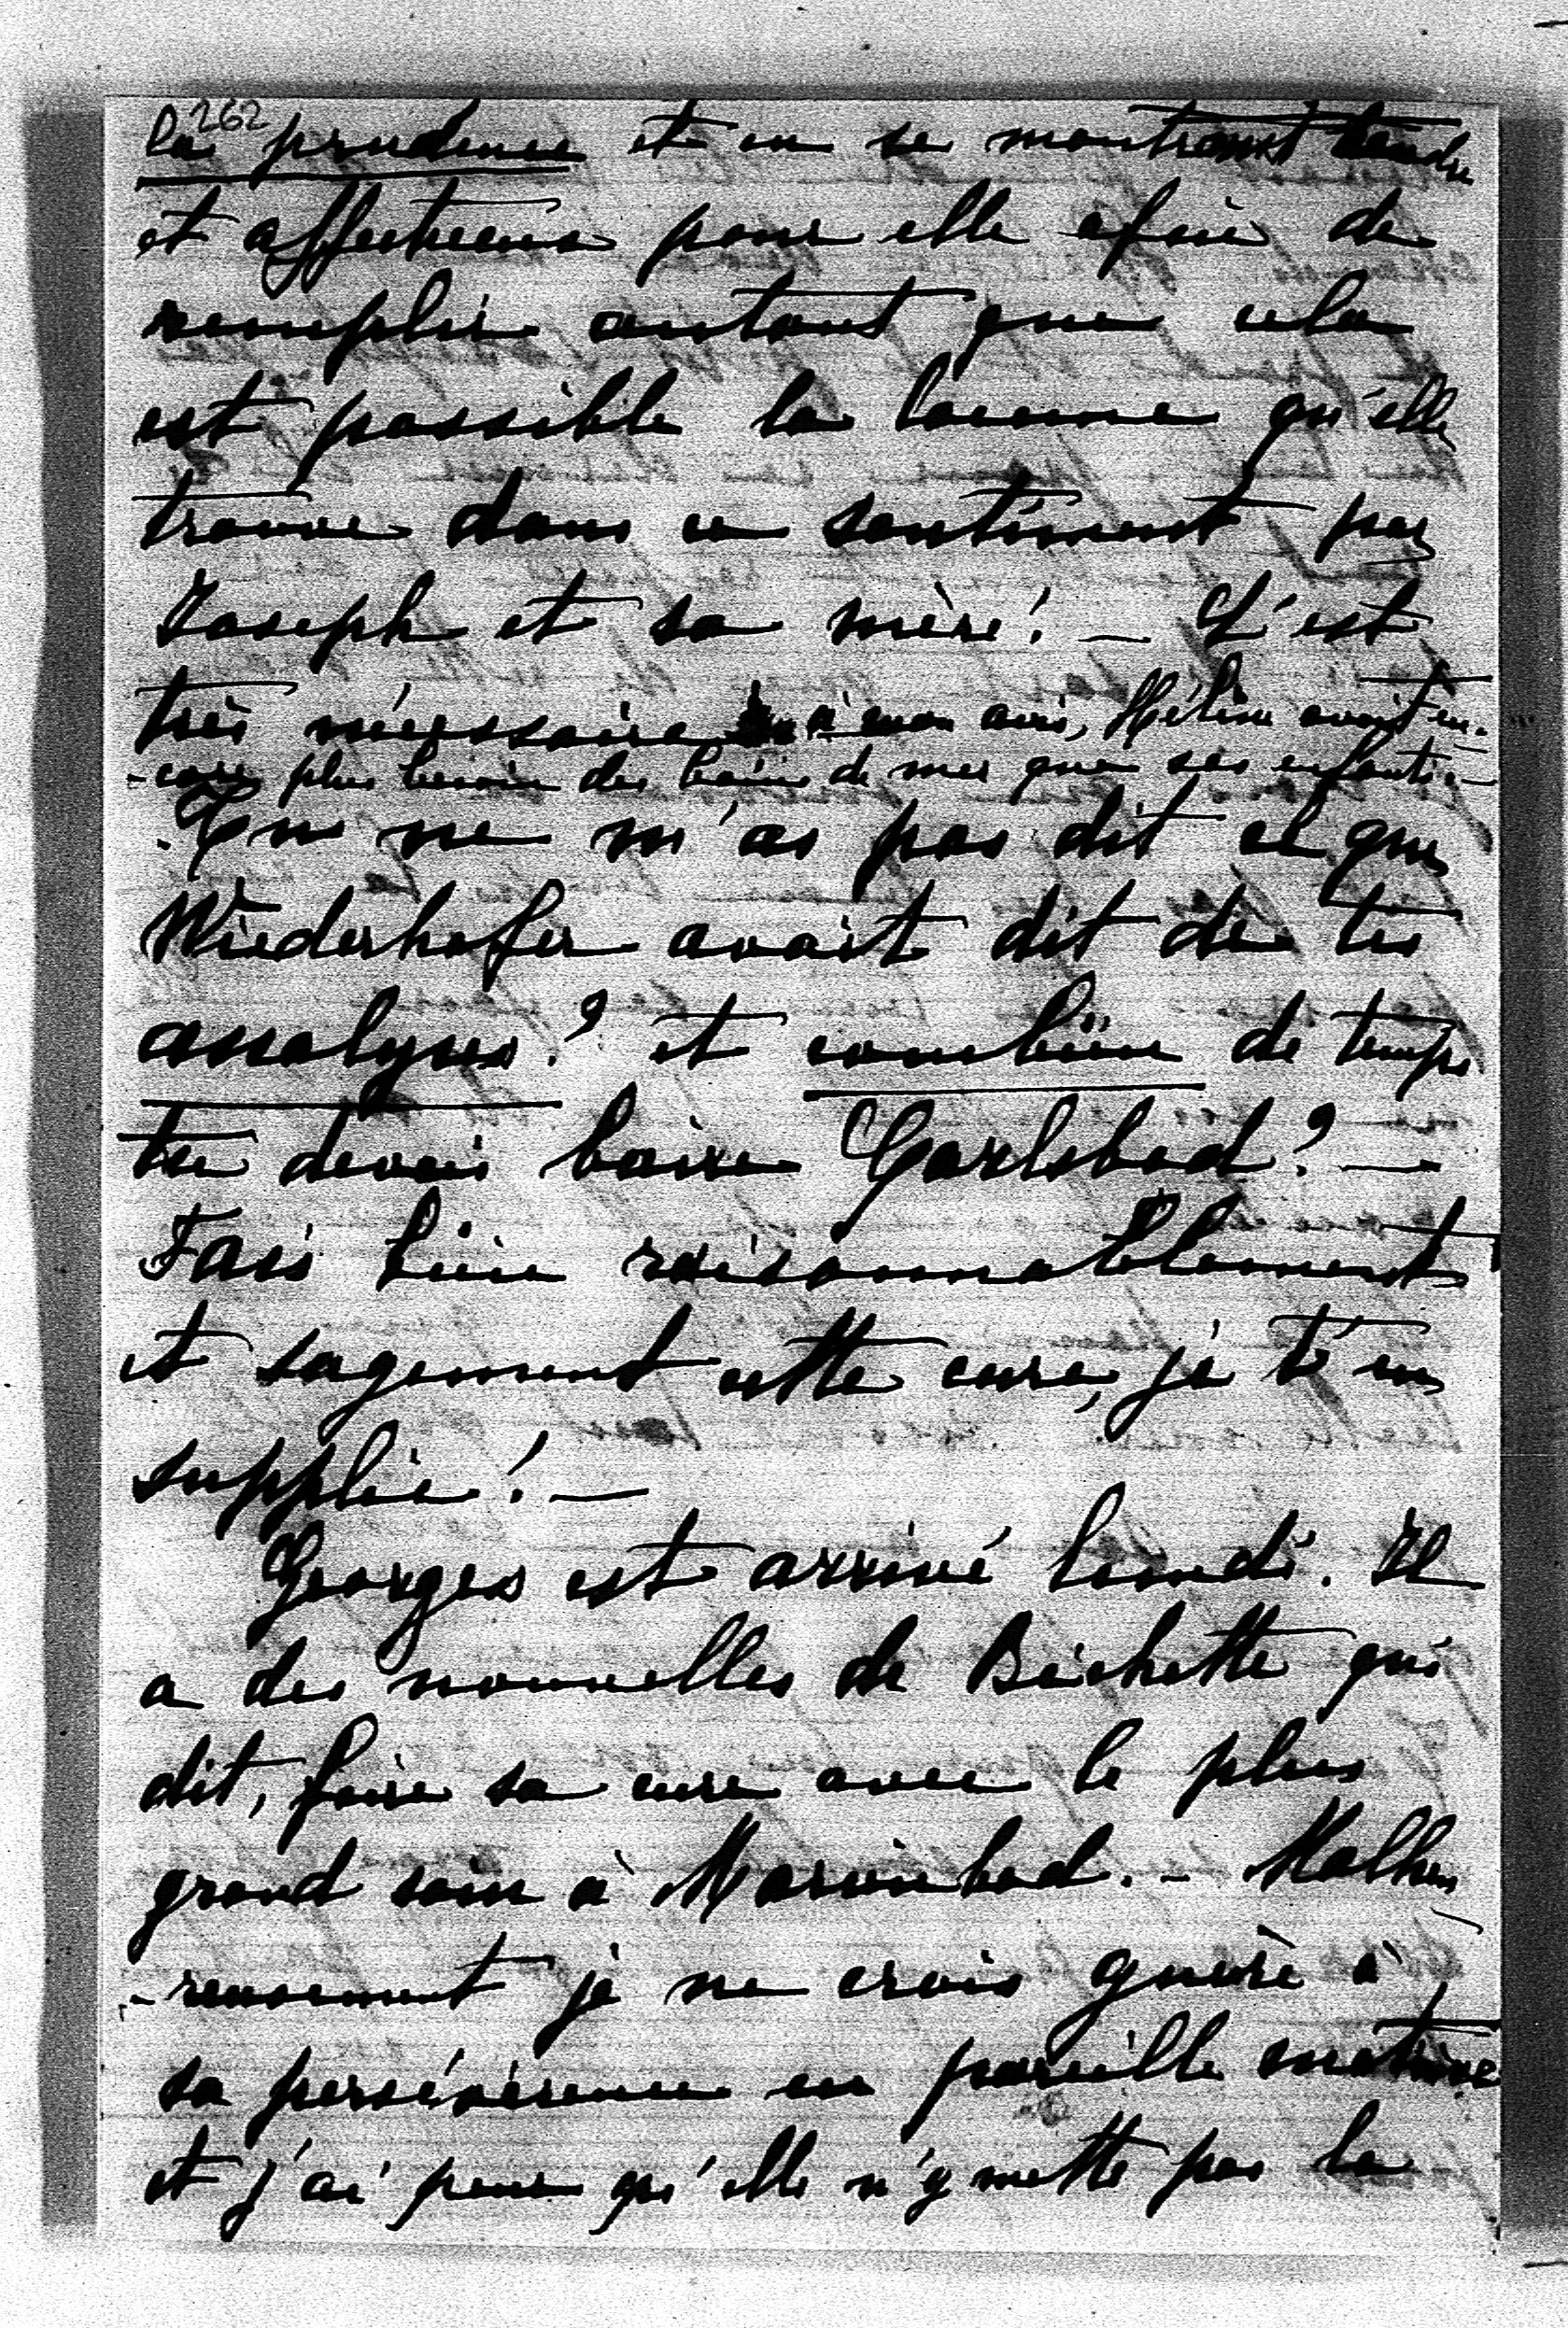 262
la prudence et en se montrant tendre
et affectueux pour elle afin de
remplir autant que cela
est possible la lacune qu'elle
trouve dans ce sentiment par
Joseph et sa mère! — C'est
très nécessaire à mon avis, Hélène avait en-
-core plus besoin des bains de mer que ses enfants. —
Tu ne m'as pas dit ce que
Wiederhofer avait dit de tes
analyses? et combien de temps
tu devais boire Carlsbad? —
Fais bien raisonnablement
et sagement cette cure, je t'en
supplie! —
Georges est arrivé lundi. Il
a des nouvelles de Bichette qui
dit, faire sa cure avec le plus
grand soin à Marienbad. - Malheu
-reusement je ne crois guère à
sa persévérence en pareille matière
et j'ai peur qu'elle n'y mette pas la